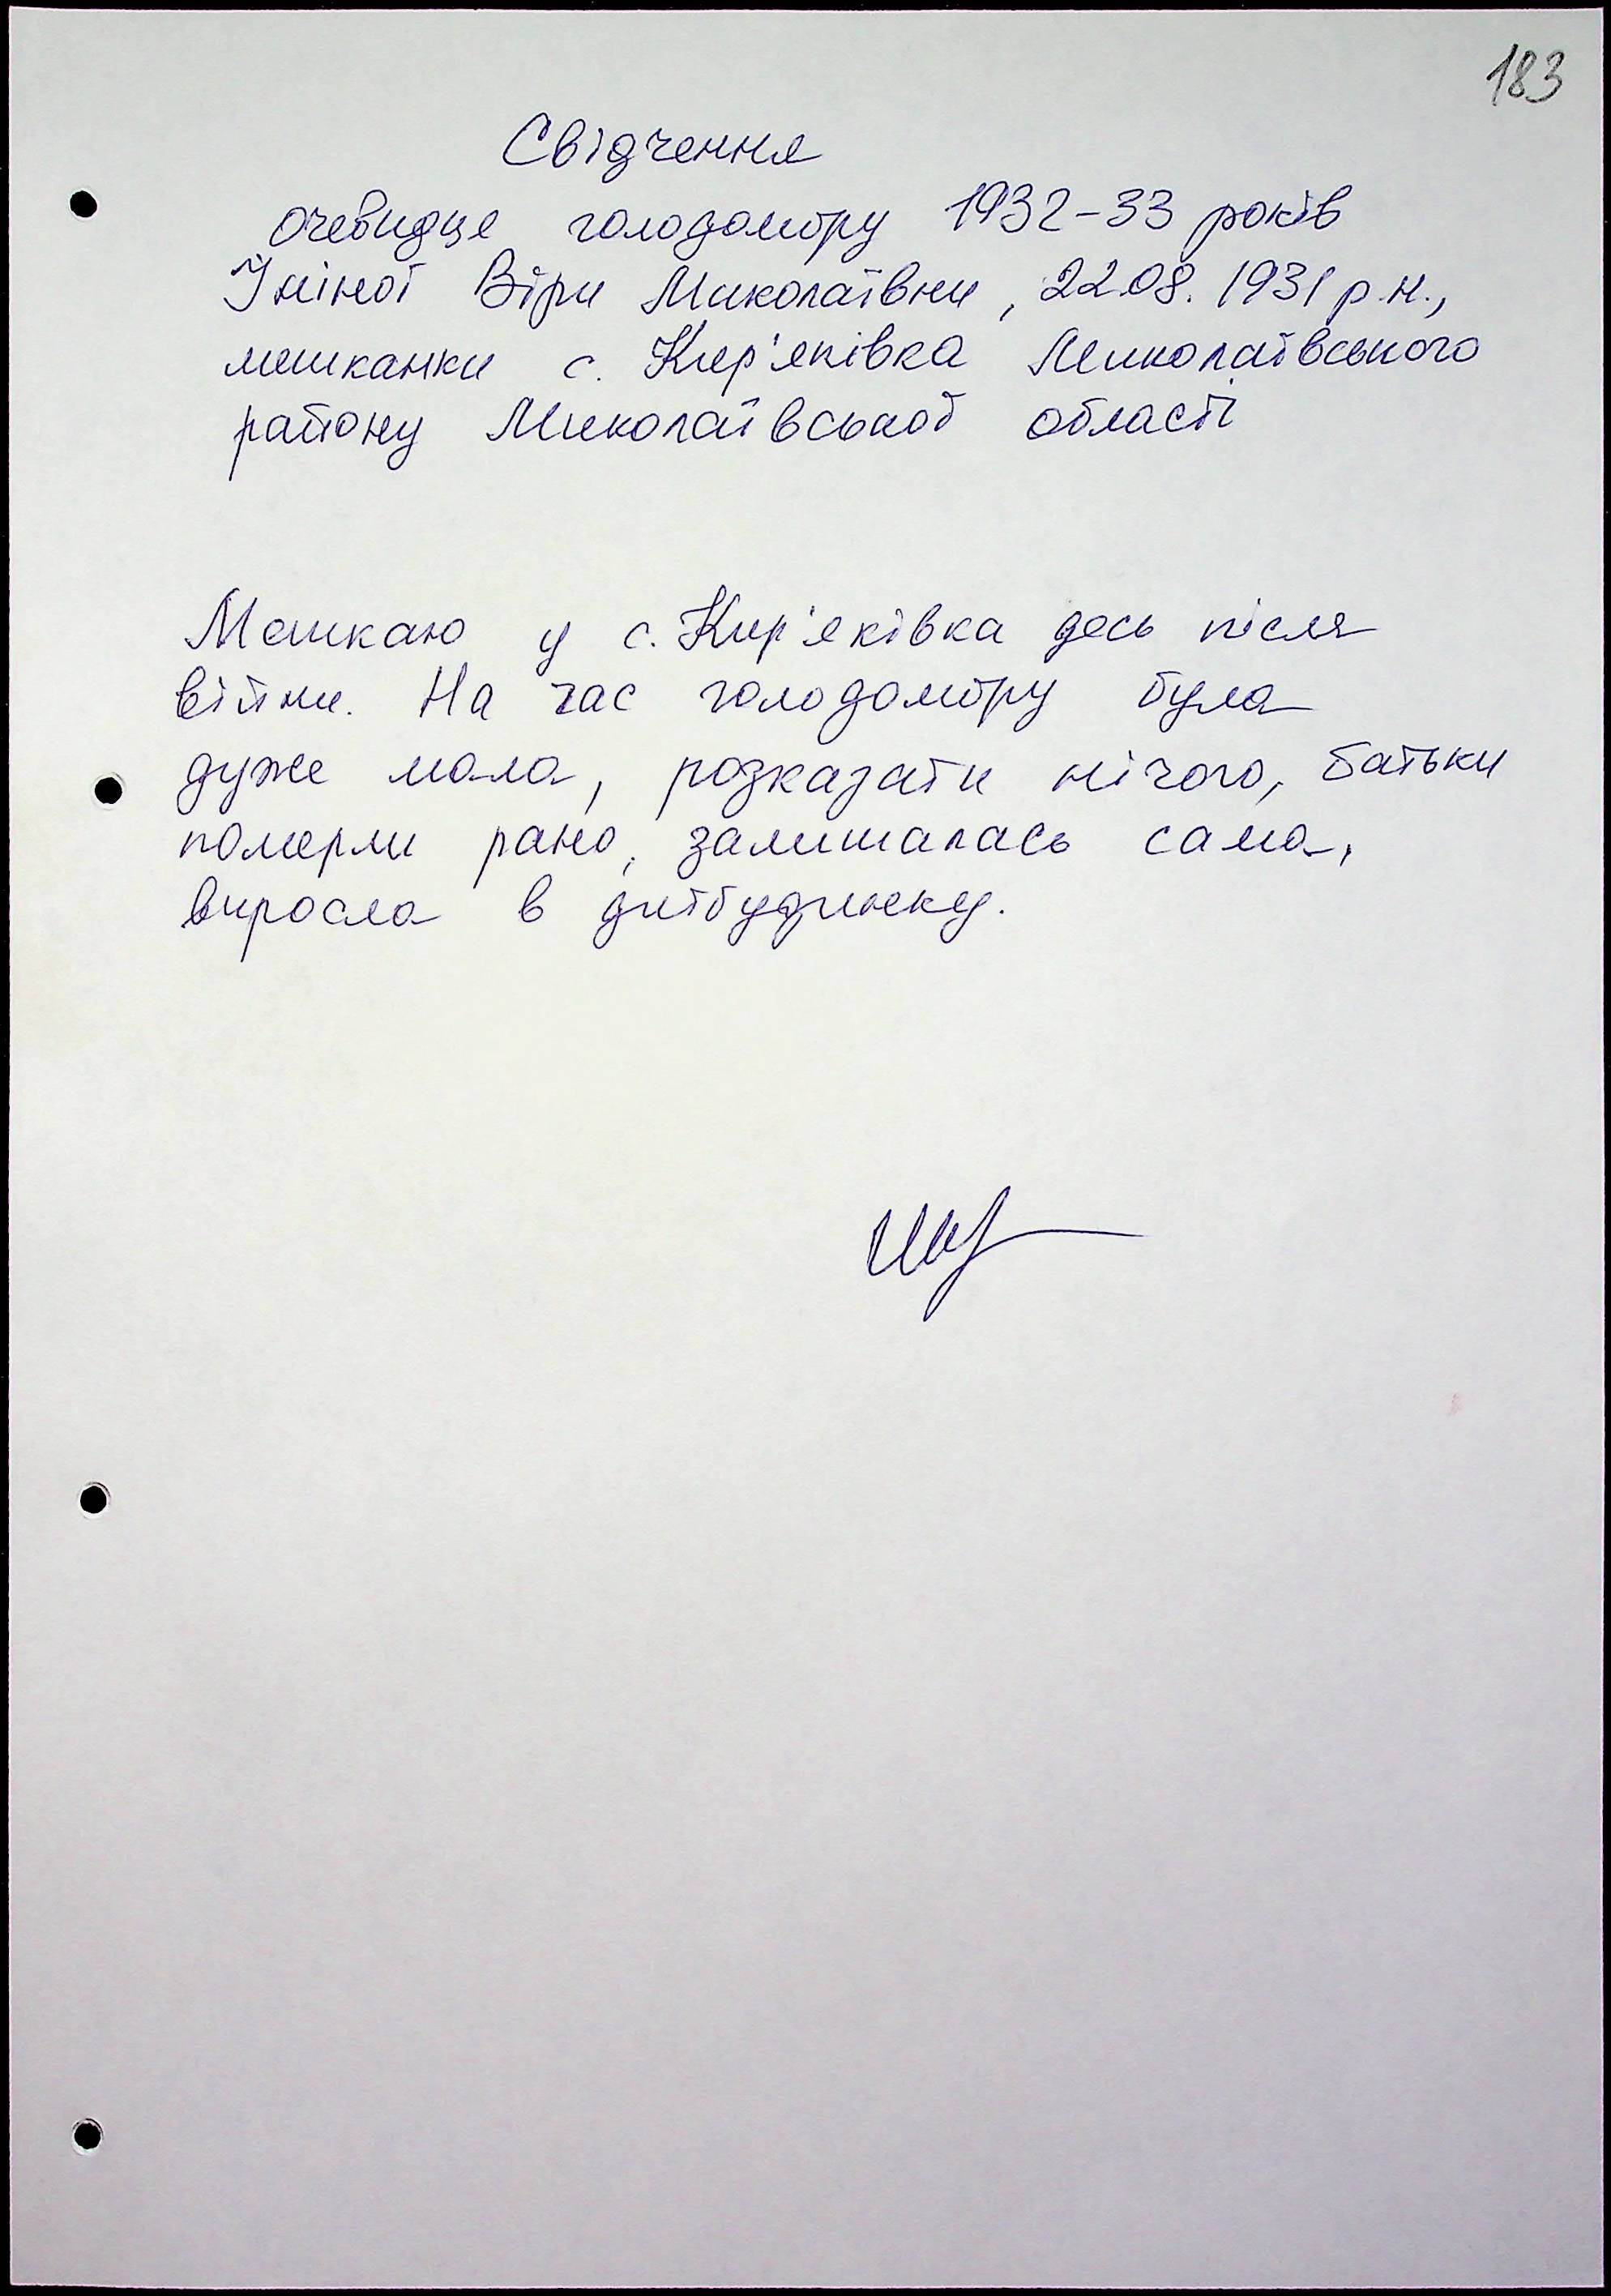 183
Свідчення
очевидця голодомору 1932-33 років
Віри Миколаївни, 22.08.1931 р.н.,
мешканки с. Кир'яківка Миколаївського
району Миколаївської області
Мешкаю у с. Кир'яківка десь після
війни. На час голодомору була
дуже мала, розказати нічого, батьки
померли рано, залишалась сама,
виросла в дитбудинку.